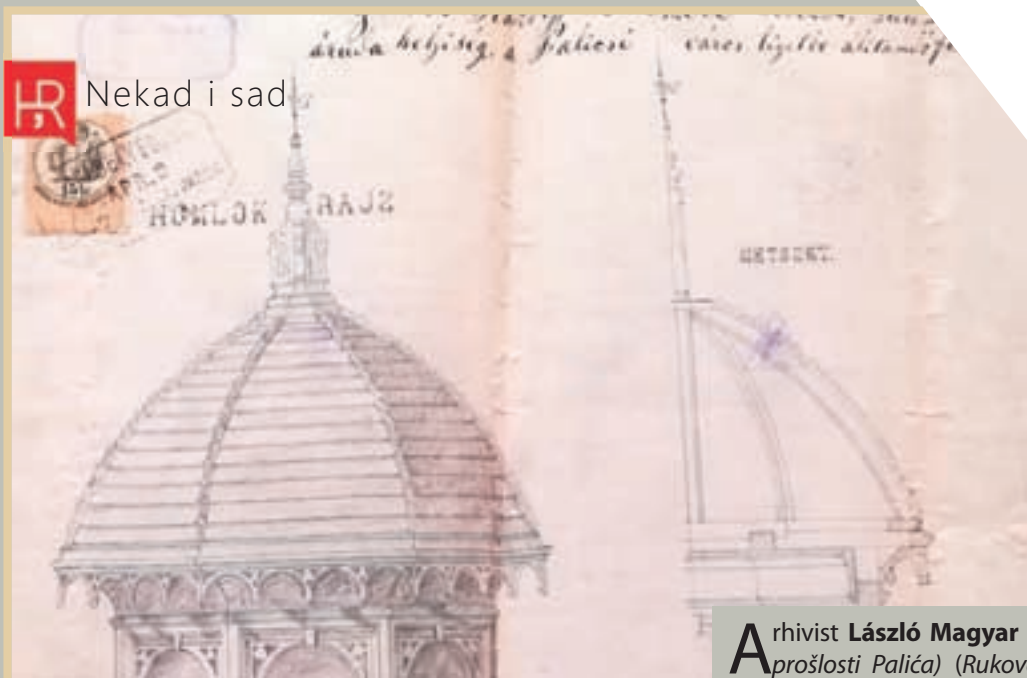 helyiség. a Palicsi város
HR Nekad i sad
HOMLOK RAJZ
METSZET.
Arhivist László Magyar
prošlosti Palića) (Rukov